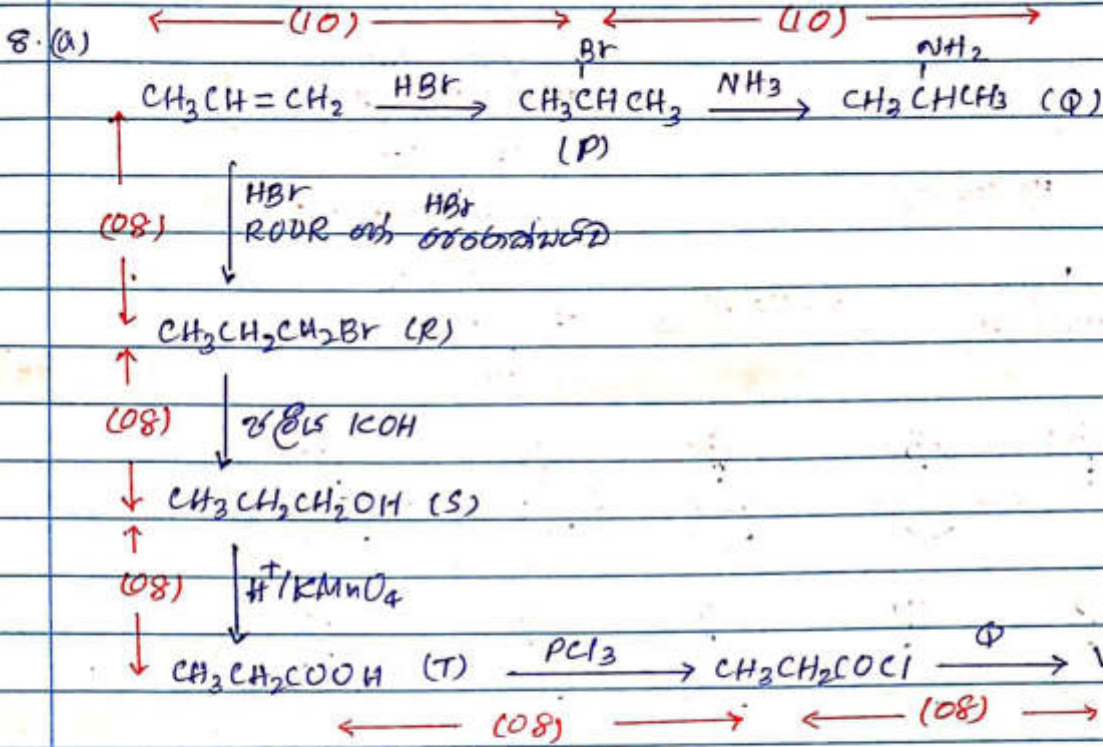 (10) (10)
8.(a)
Br NH2
CH3CH=CH2 HBr CH3CHCH3 NH3 CH3CHCH3 (Q)
(P)
HBr HBr
(08) ROOR හෝ පෙරොක්සයිඩ
CH3CH2CH2Br (R)
(08) ජලීය KOH
CH3CH2CH2OH (S)
(08) H+/KMnO4
CH3CH2COOH (T) PCl3 CH3CH2COCl Q V
(08) (08)